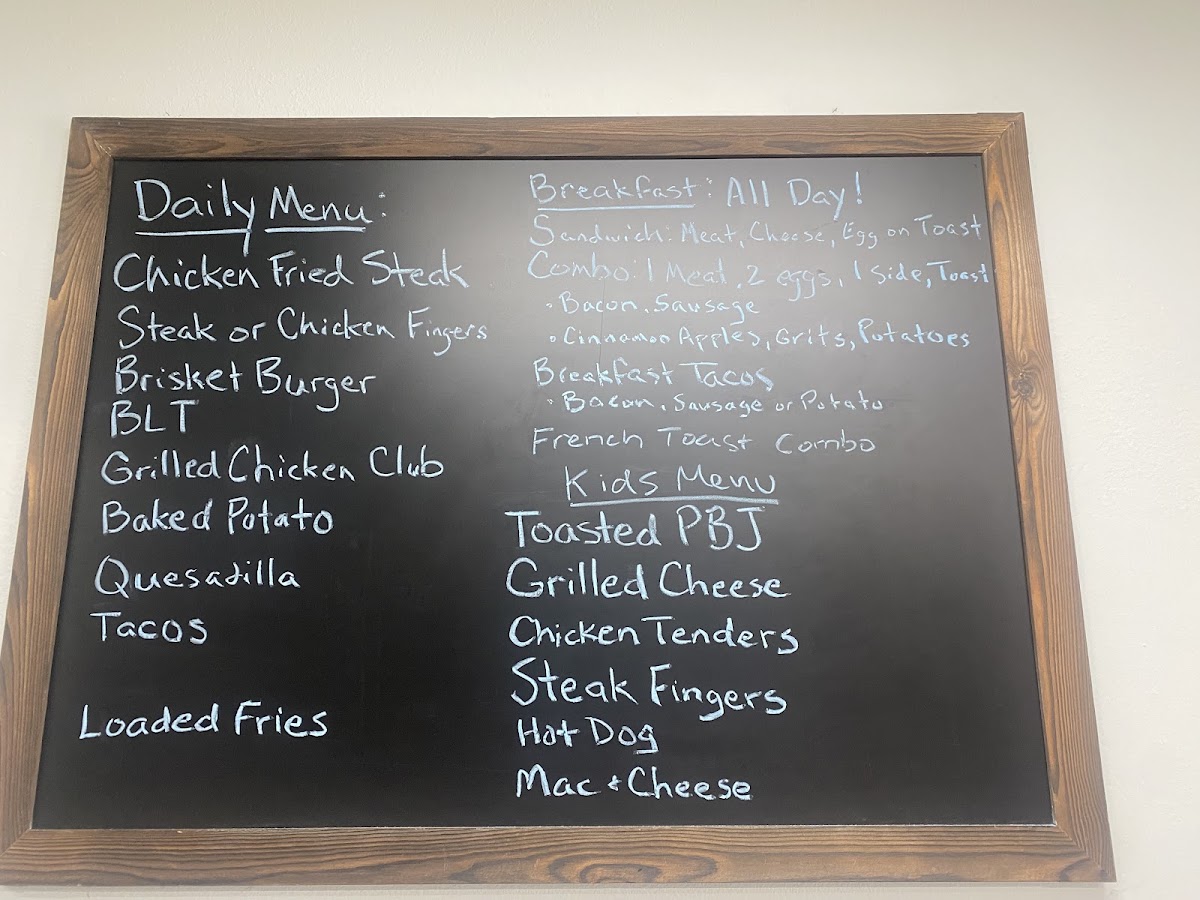 Daily Menu:
Chicken Fried Steak
Steak or Chicken Fingers
Brisket Burger
BLT
Grilled Chicken Club
Baked Potato
Quesadilla
Tacos
Loaded Fries
Breakfast: All Day!
Sandwich: Meat, Cheese, Egg on Toast
Combo: 1 Meat, 2 eggs, 1 Side, Toast
• Bacon, Sausage
• Cinnamon Apples, Grits, Potatoes
Breakfast Tacos
• Bacon, Sausage or Potato
French Toast Combo
Kids Menu
Toasted PBJ
Grilled Cheese
Chicken Tenders
Steak Fingers
Hot Dog
Mac + Cheese